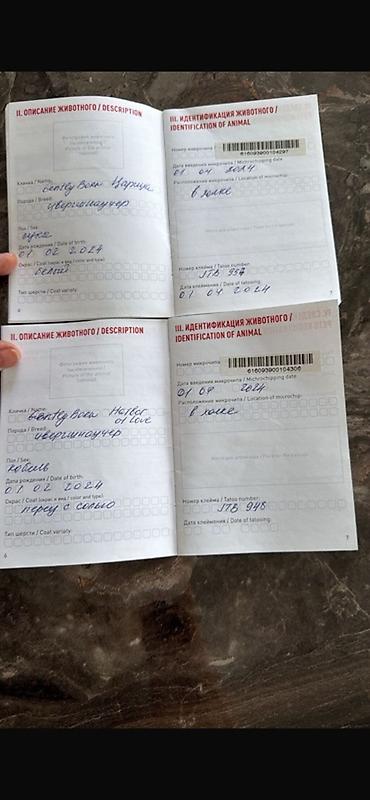 II. ОПИСАНИЕ ЖИВОТНОГО / DESCRIPTION
Фотография животного
Picture of the animal
Кличка / Name:
Порода / Breed:
цвергшнауцер
Пол / Sex:
сука
Дата рождения / Date of birth:
01 02 2024
Окрас / Coat (окрас и вид / color and type):
белый
Тип шерсти / Coat variety:
6
III. ИДЕНТИФИКАЦИЯ ЖИВОТНОГО /
IDENTIFICATION OF ANIMAL
Номер микрочипа
616093900104297
Дата введения микрочипа / Microchipping date:
01 04 2024
Расположение микрочипа / Location of microchip:
в холке
Номер клейма / Tatoo number:
Дата клеймения / Date of tatooing:
01 04 2024
7
II. ОПИСАНИЕ ЖИВОТНОГО / DESCRIPTION
Фотография животного
Picture of the animal
Кличка / Name:
Harbor
of Love
Порода / Breed:
цвергшнауцер
Пол / Sex:
кобель
Дата рождения / Date of birth:
01 02 2024
Окрас / Coat (окрас и вид / color and type):
перец с солью
Тип шерсти / Coat variety:
6
III. ИДЕНТИФИКАЦИЯ ЖИВОТНОГО /
IDENTIFICATION OF ANIMAL
Номер микрочипа
616093900104306
Дата введения микрочипа / Microchipping date:
01 04 2024
Расположение микрочипа / Location of microchip:
в холке
Номер клейма / Tatoo number:
Дата клеймения / Date of tatooing:
7